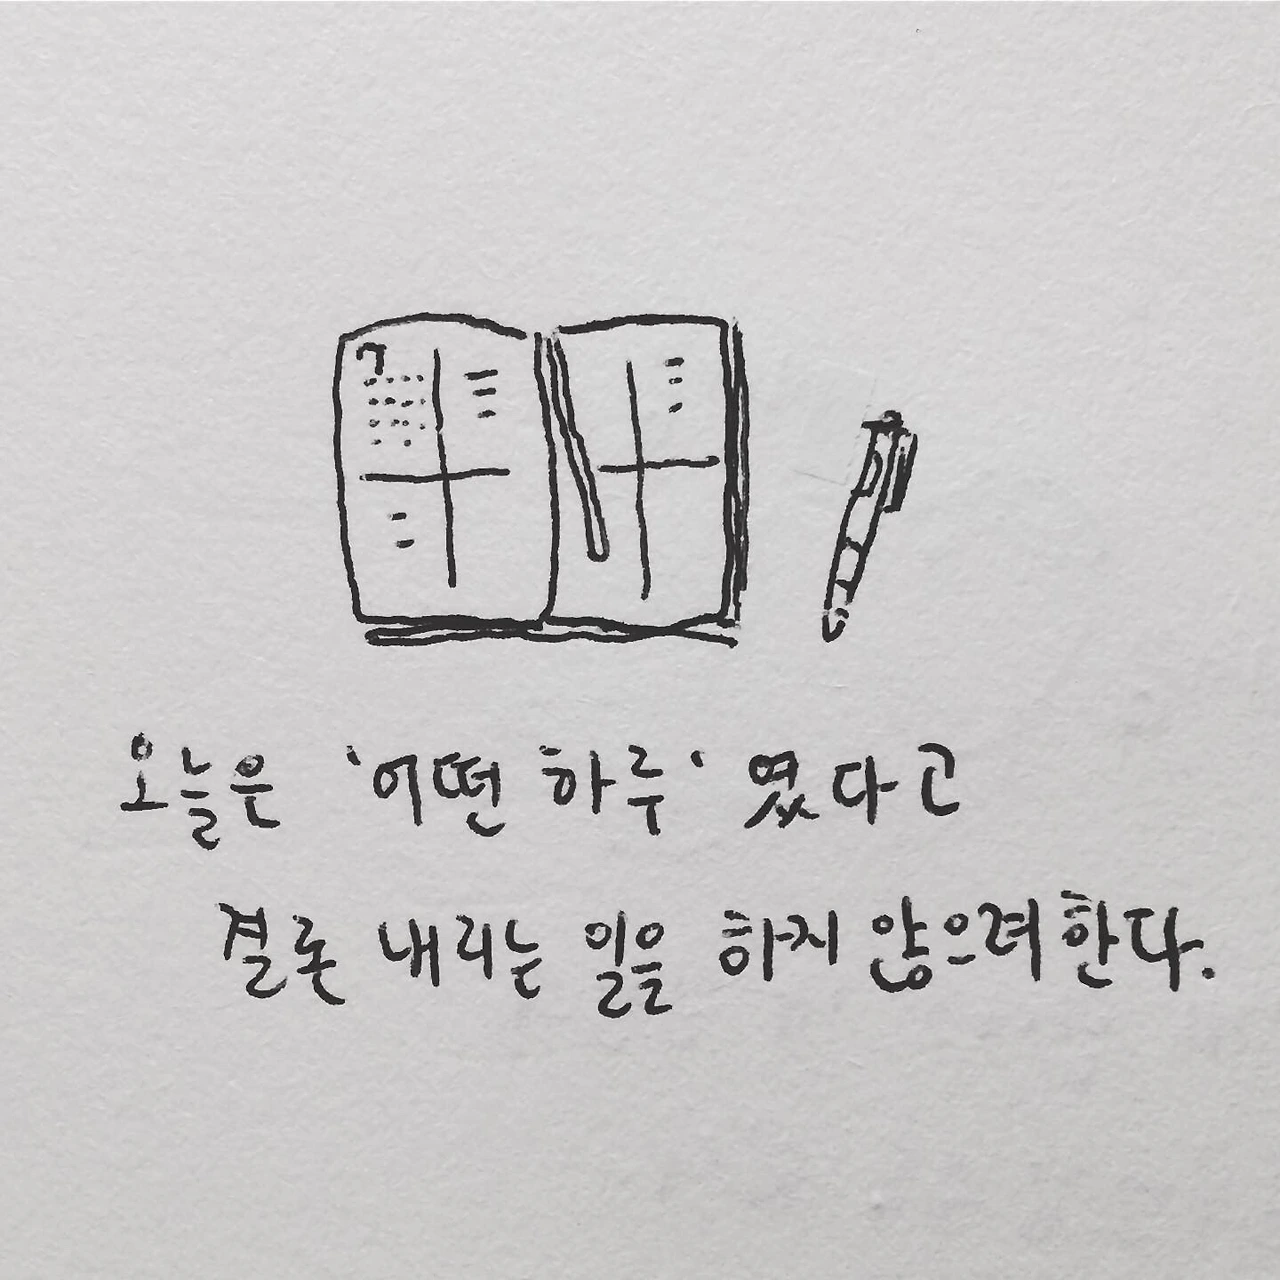 7
오늘은 '어떤 하루' 였다고
결론 내리는 일을 하지 않으려 한다.